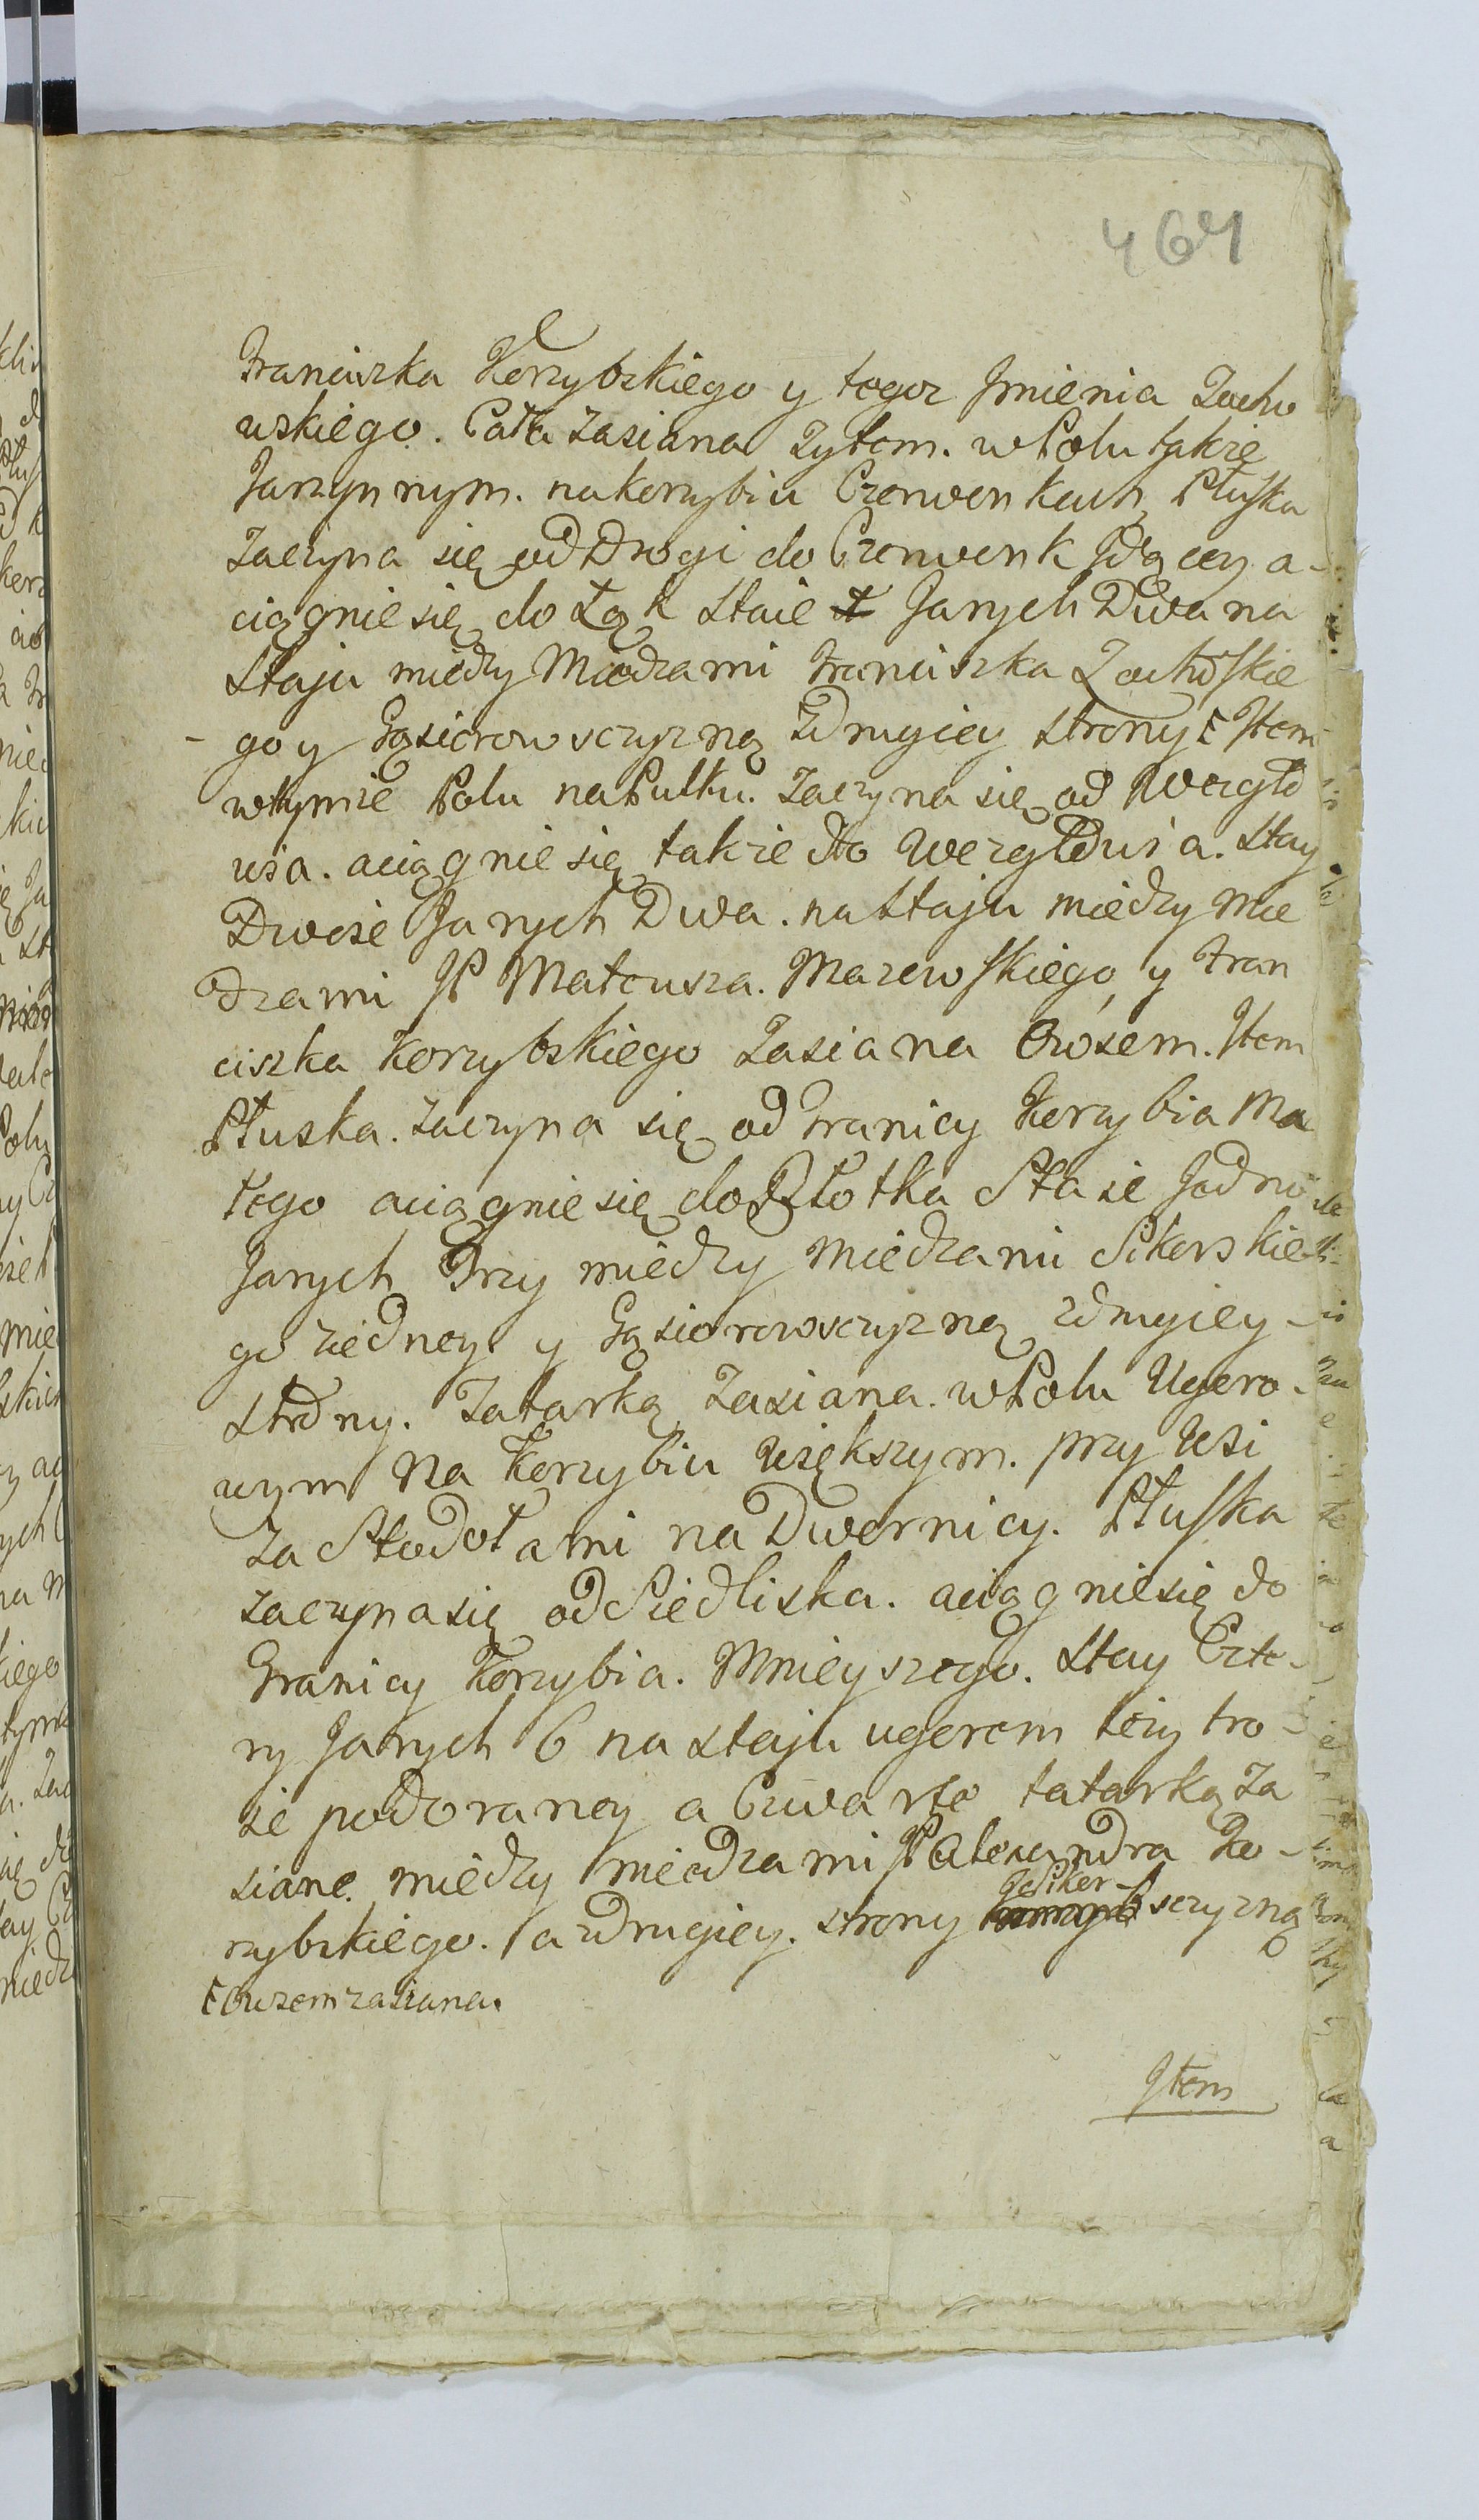 464
Franciszka Korzybskiego y tegoz Jmienia Zocho
wskiego. Cała zasiana Zytem. w Polu takze
Jarzynnym. na korzybiu Czerwenkach Płuska
zaczyna się od Drogi do Czerwenk Jdącey a-
ciągnie się do Łąk Staie Jarych Dwa na
Staju miedzy Miedzami Franciszka Zochoskie
- go y Gąsiorowsczyzną z Drugiey Strony Item
w tymze Polu na Pulku. zaczyna się od Wezgło
wia. a ciągnie się takze do Wezgłowia. Stay
Dwoie Jarych Dwa. na Staju miedzy mie
dzami JP Mateusza. Mazewskiego y Fran
ciszka Korzybskiego Zasiana Owsem. Item
Płuska. zaczyna się od Granicy Korzybia Ma
łego a ciągnie się do Błotka Staie Jedno
Jarych Trzy miedzy Miedzami Sikorskie
go z iedney y Gąsiorowsczyzną z drugiey -
strony. Tatarką zasiana. w Polu Ugoro-
wym Na Korzybiu większym. przy Wsi
za Stodołami na Dwornicy. Płuska
zaczyna się od Siedliska. a ciągnie się do
Granicy Korzybia. Mnieyszego. Stay Czte-
ry Jarych 6 na staju ugorem lezy tro-
ie podoraney a Czwarte tatarką za
siane. miedzy miedzami JP Alexandra Ko-
rzybskiego. a z drugiey. strony Gosiker- sczyzną
Owsem zasiana.
Item